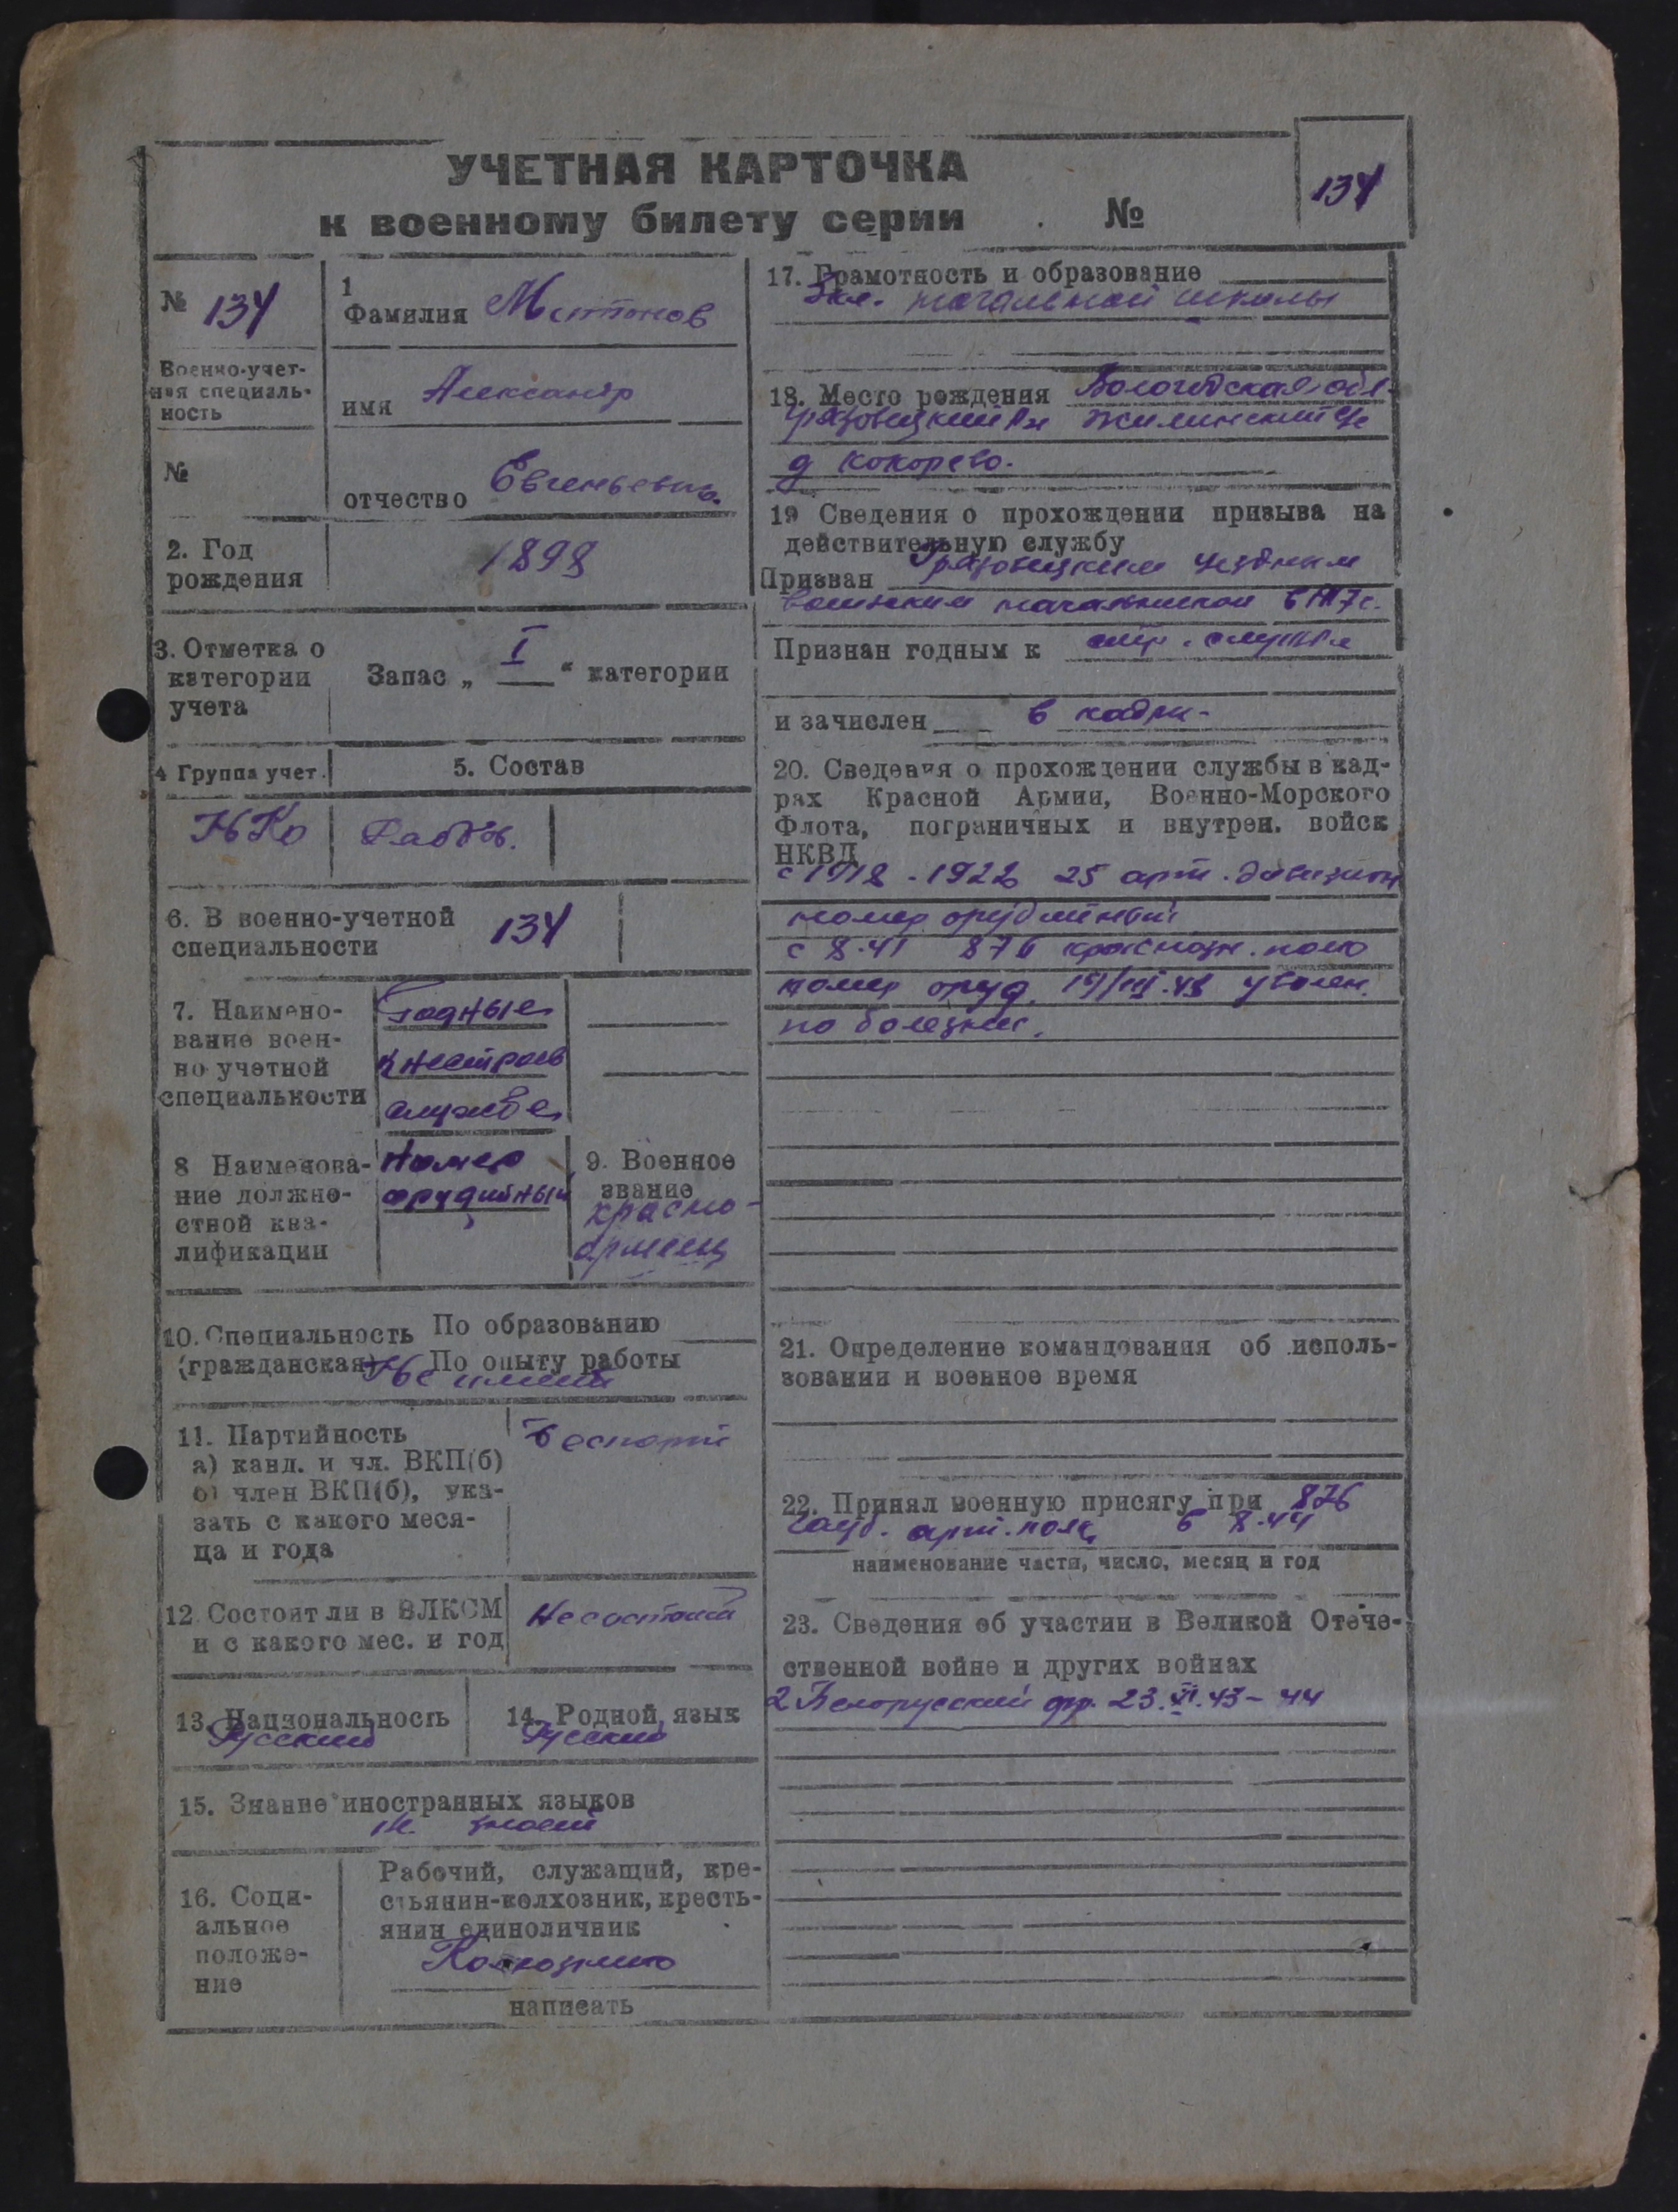 УЧЕТНАЯ КАРТОЧКА
к военному билету серии №
134
№ 134
1
Фамилия
имя Александр
отчество Евгеньевич.
Военно-учет-
ная специаль-
ность
№
2. Год
рождения
1898
3. Отметка о
категории
учета
Запас „ I “ категории
4 Группа учет.
5. Состав
НКо
6. В военно-учетной
специальности
134
7. Наимено-
вание воен-
но учетной
специальности
Годные
к нестроев
службе
8 Наименова-
ние должно-
стной ква-
лификации
Номер
орудийный
9. Военное
звание
красно-
армеец
10. Специальность
(гражданская)
По образованию
По опыту работы
Не имеет
11. Партийность
а) канд. и чл. ВКП(б)
б) член ВКП(б), ука-
зать с какого меся-
ца и года
беспарт
12. Состоит ли в ВЛКСМ
и с какого мес. и год
Не состоит
13. Национальность
Русский
14. Родной язык
Русский
15. Знание иностранных языков
не знает
16. Соци-
альное
положе-
ние
Рабочий, служащий, кре-
стьянин-колхозник, кресть-
янин единоличник
Колхозник
написать
17. Грамотность и образование
начальной школы
18. Место рождения Вологодская обл.
Грязовецкий рн Жилинский
д Кокорево.
19 Сведения о прохождении призыва на
действительную службу
Призван Грязовецким уездным
воинским начальником в 1917 г.
Признан годным к стр. службе
и зачислен в кадры
20. Сведения о прохождении службы в кад-
рах Красной Армии, Военно-Морского
Флота, пограничных и внутрен. войск
НКВД
25 арт. дивизион
номер орудийный
с 8.41 876
номер оруд. уволен.
по болезни.
21. Определение командования об исполь-
зовании и военное время
22. Принял военную присягу при 876
гауб. арт. полк
наименование части, число, месяц и год
23. Сведения об участии в Великой Отече-
ственной войне и других войнах
2 Белорусский фр. 23. VI. 43 - 44